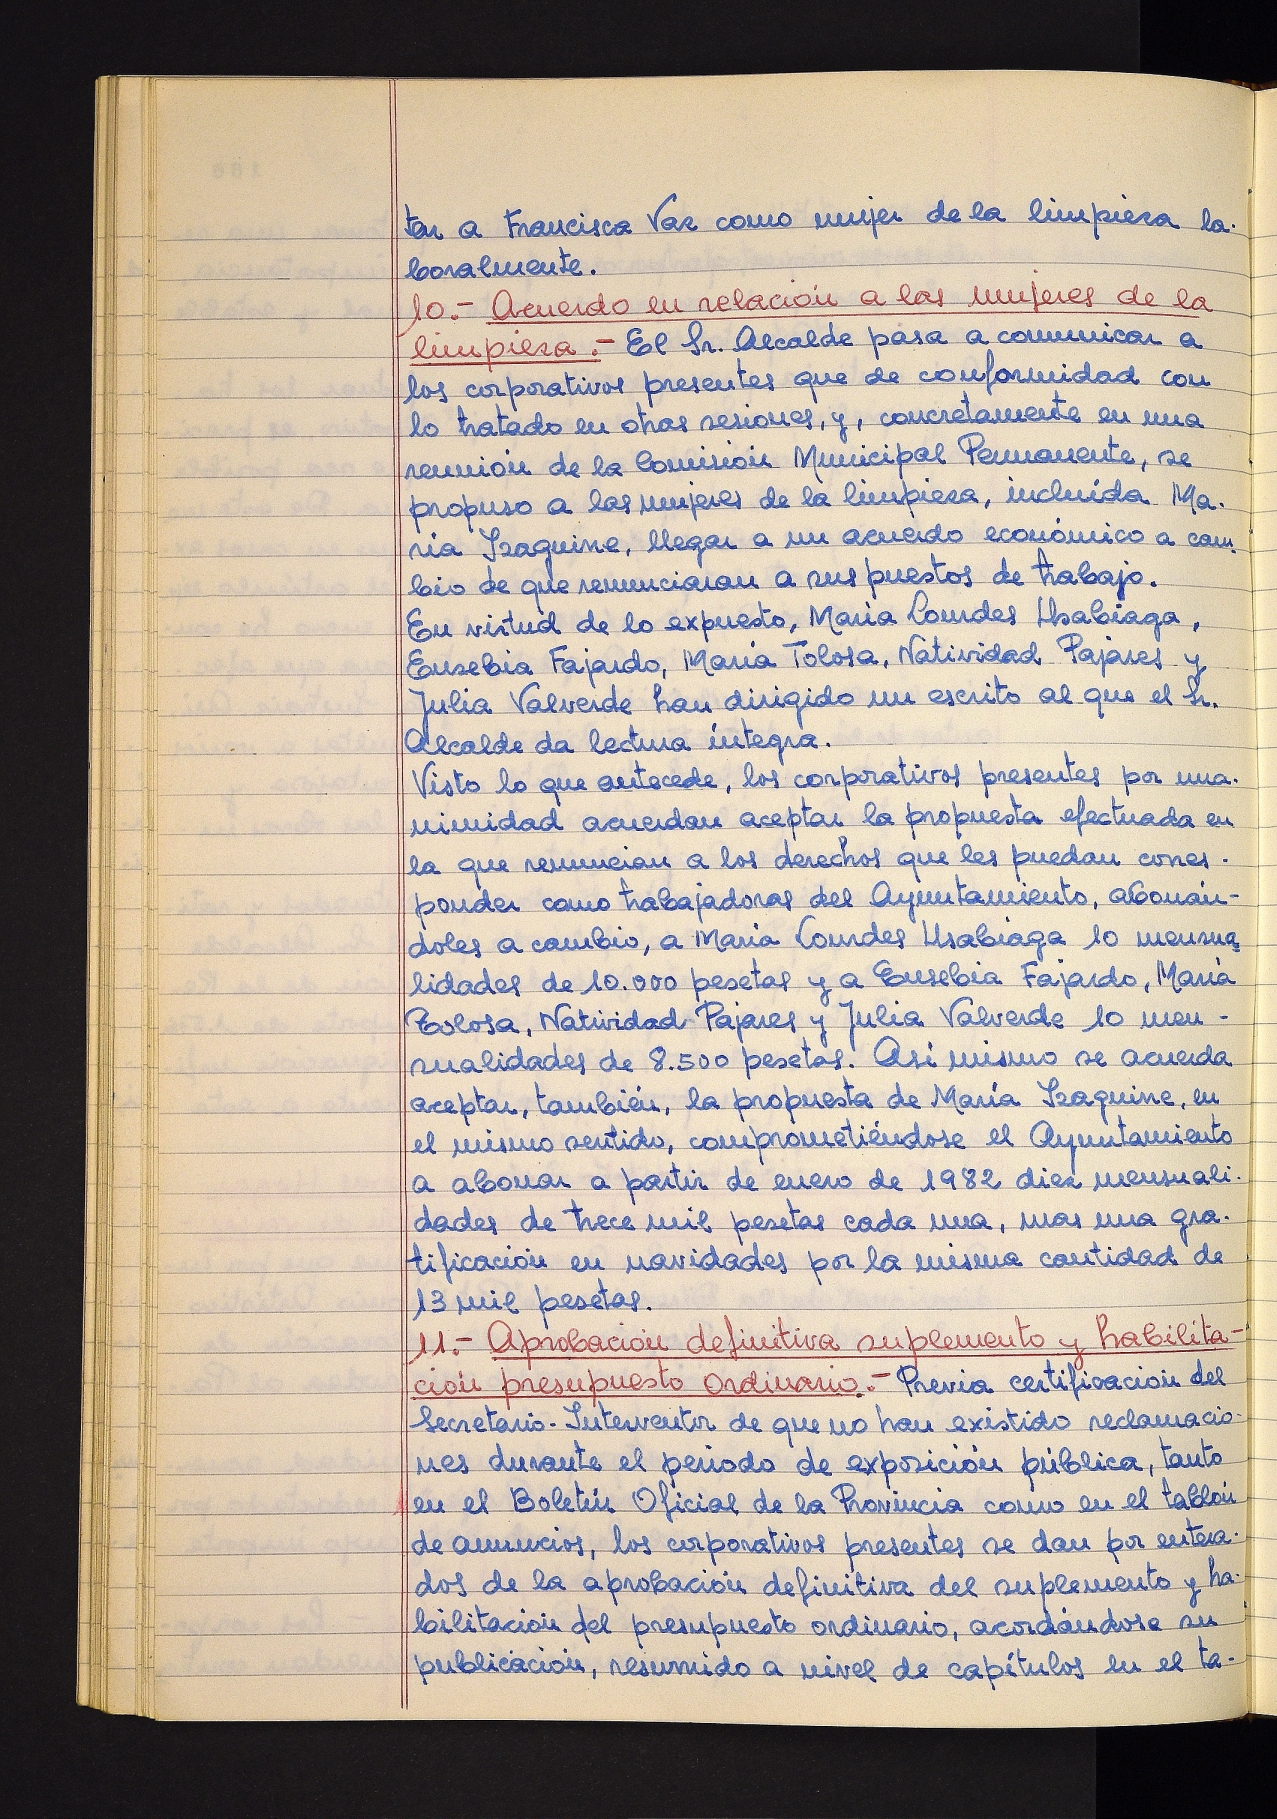 tar a Francisca Vaz como mujer de la limpieza la-
boralmente.
10.- Acuerdo en relación a las mujeres de la
limpieza.- El Sr. Alcalde pasa a comunicar a
los corporativos presentes que de conformidad con
lo tratado en otras sesiones, y, concretamente en una
reunión de la Comisión Municipal Permanente, se
propuso a las mujeres de la limpieza, incluída Ma-
ría Izaguirre, llegar a un acuerdo económico a cam-
bio de que renunciaran a sus puestos de trabajo.
En virtud de lo expuesto, María Lourdes Usabiaga,
Eusebia Fajardo, María Tolosa, Natividad Pajares y
Julia Valverde han dirigido un escrito al que el Sr.
Alcalde da lectura íntegra.
Visto lo que antecede, los corporativos presentes por una-
nimidad acuerdan aceptar la propuesta efectuada en
la que renuncian a los derechos que les puedan corres-
ponder como trabajadoras del Ayuntamiento, abonán-
doles a cambio, a María Lourdes Usabiaga 10 mensua-
lidades de 10.000 pesetas y a Eusebia Fajardo, María
Tolosa, Natividad Pajares y Julia Valverde 10 men-
sualidades de 8.500 pesetas. Así mismo se acuerda
aceptar, también, la propuesta de María Izaguirre, en
el mismo sentido, comprometiéndose el Ayuntamiento
a abonar a partir de enero de 1982 diez mensuali-
dades de trece mil pesetas cada una, mas una gra-
tificación en navidades por la misma cantidad de
13 mil pesetas.
11.- Aprobación definitiva suplemento y habilita-
ción presupuesto ordinario.- Previa certificación del
Secretario-Interventor de que no han existido reclamacio-
nes durante el período de exposición pública, tanto
en el Boletín Oficial de la Provincia como en el tablón
de anuncios, los corporativos presentes se dan por entera-
dos de la aprobación definitiva del suplemento y ha-
bilitación del presupuesto ordinario, acordándose su
publicación, resumido a nivel de capítulos en el ta-